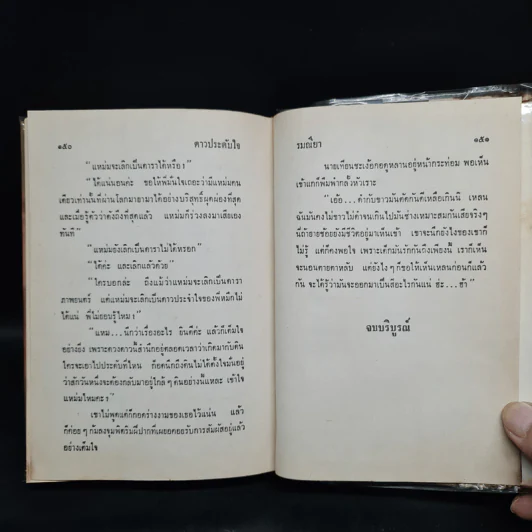 ๑๕๐ ดาวประดับใจ
"แหม่มจะเลิกเป็นดาราได้หรือ?"
"ได้แน่นอนค่ะ ขอให้พี่มั่นใจเถอะว่ามีแหม่มคน
เดียวเท่านั้นที่ผ่านโลกมายามาได้อย่างบริสุทธิ์ผุดผ่องที่สุด
และเมื่อรู้ตัวว่าดังถึงที่สุดแล้ว แหม่มก็ร่วงลงมาเสียเอง
ทันที"
"แหม่มยังเลิกเป็นดาราไม่ได้หรอก"
"ได้ค่ะ และเลิกแล้วด้วย"
"ใครบอกล่ะ ถึงแม้ว่าแหม่มจะเลิกเป็นดารา
ภาพยนตร์ แต่แหม่มจะเลิกเป็นดาวประจำใจของพี่หมึกไม่
ได้แน่ พี่ไม่ยอมรู้ไหม?"
"แหม...นึกว่าเรื่องอะไร ยินดีค่ะ แล้วก็เต็มใจ
อย่างยิ่ง เพราะดวงดาวนี้สำนึกอยู่ตลอดเวลาว่าเกิดมากับดิน
ใครจะเอาไปประดับที่ไหน ก็อดนึกถึงดินไม่ได้ตั้งใจมั่นอยู่
ว่าสักวันหนึ่งจะต้องกลับมาอยู่ใกล้ ๆ ดินอย่างนี้แหละ เข้าใจ
แหม่มไหมคะ?"
เขาไม่พูดแต่ก็กอดร่างงามของเธอไว้แน่น แล้ว
ก็ค่อย ๆ ก้มลงจุมพิตริมฝีปากที่เผยอคอยรับการสัมผัสอยู่แล้ว
อย่างเต็มใจ
รมณียา ๑๕๑
นายเทียนชะเง้อคอดูหลานอยู่หน้ากระท่อม พอเห็น
เข้าแกก็พึมพำกลั้วหัวเราะ
"เฮ้อ...ดำกับขาวมันตัดกันดีเหลือเกินนิ เหลน
ฉันมันคงไม่ขาวไม่ดำจนเกินไปมันช่างเหมาะสมกันเสียจริงๆ
นี่ถ้ายายช้อยยังมีชีวิตอยู่มาเห็นเข้า เขาจะนึกยังไงของเขาก็
ไม่รู้ แต่ก็คงพอใจ เพราะเด็กมันรักกันถึงเพียงนี้ เราก็เห็น
จะนอนตายตาหลับ แต่ยังไง ๆ ก็ขอให้เห็นเหลนก่อนก็แล้ว
กัน จะได้รู้ว่ามันจะออกมาเป็นสีอะไรกันแน่ ฮ่ะ...ฮ่า"
จบบริบูรณ์